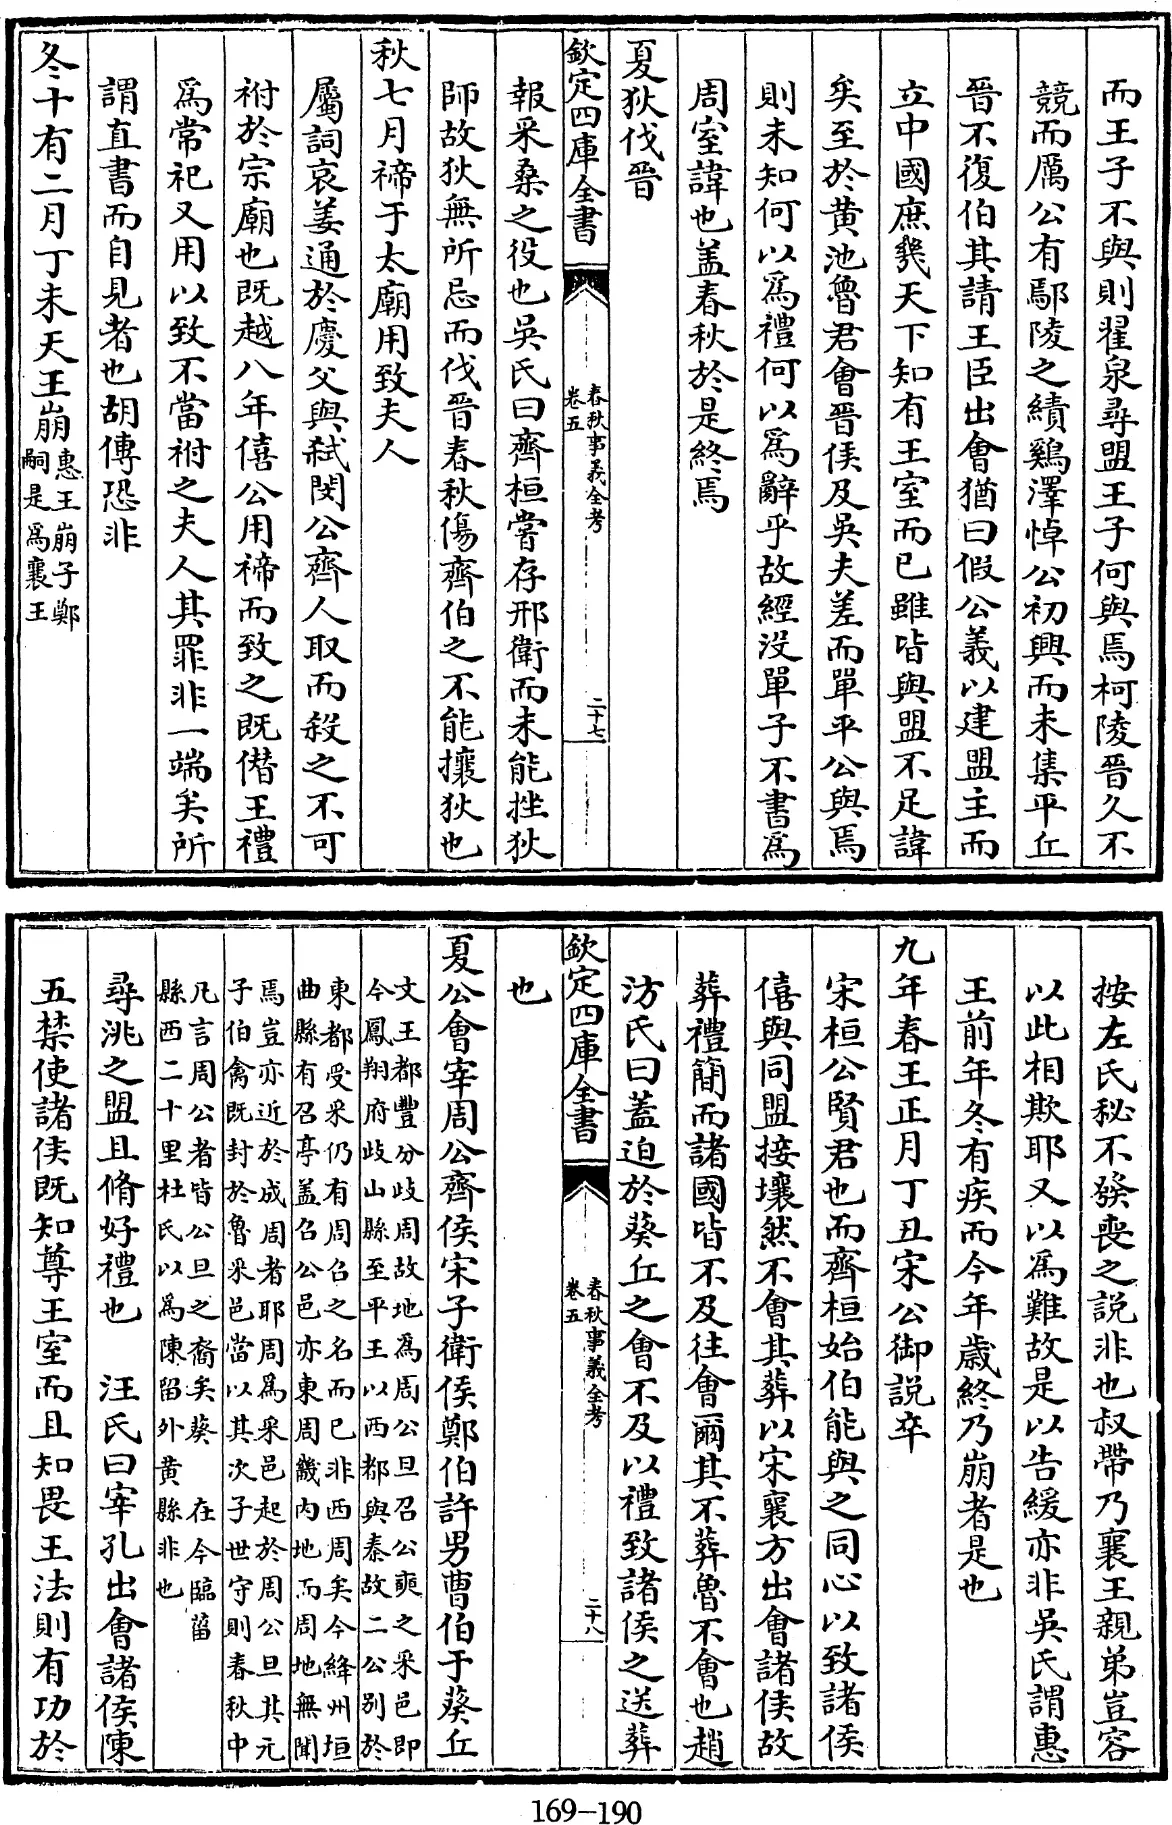 而王子不與則翟泉尋盟王子何與焉柯陵晉久不
競而厲公有鄢陵之績鷄澤悼公初興而未集平丘
晉不復伯其請王臣出會猶曰假公義以建盟主而
立中國庶㡬天下知有王室而已雖皆與盟不足諱
矣至於黄池魯君會晉侯及吳夫差而單平公與焉
則未知何以爲禮何以爲辭乎故經没單子不書爲
周室諱也盖春秋於是終焉
夏狄伐晉
欽定四庫全書
春秋事義全考
卷五
二十七
報采桑之役也吳氏曰齊桓嘗存邢衛而未能挫狄
師故狄無所忌而伐晉春秋傷齊伯之不能攘狄也
秋七月禘于太廟用致夫人
屬詞哀姜通於慶父與弑閔公齊人取而殺之不可
祔於宗廟也既越八年僖公用禘而致之既僭王禮
爲常祀又用以致不當祔之夫人其罪非一端矣所
謂直書而自見者也胡傳恐非
冬十有二月丁未天王崩惠王崩子鄭
嗣是爲襄王
按左氏秘不發喪之説非也叔帶乃襄王親弟豈容
以此相欺耶又以爲難故是以告緩亦非吳氏謂惠
王前年冬有疾而今年歲終乃崩者是也
九年春王正月丁丑宋公御説卒
宋桓公賢君也而齊桓始伯能與之同心以致諸侯
僖與同盟接壤然不會其葬以宋襄方出會諸侯故
葬禮簡而諸國皆不及往會爾其不葬魯不會也趙
汸氏曰盖迫於葵丘之會不及以禮致諸侯之送葬
欽定四庫全書
春秋事義全考
卷五
二十八
也
夏公會宰周公齊侯宋子衛侯鄭伯許男曹伯于葵丘
文王都豐分岐周故地爲周公旦召公奭之采邑即
今鳳翔府岐山縣至平王以西都與秦故二公别於
東都受采仍有周召之名而已非西周矣今絳州垣
曲縣有召亭盖召公邑亦東周畿内地而周地無聞
焉豈亦近於成周者耶周爲采邑起於周公旦其元
子伯禽既封於魯采邑當以其次子世守則春秋中
凡言周公者皆公旦之裔矣葵 在今臨菑
縣西二十里杜氏以爲陳留外黄縣非也
尋洮之盟且脩好禮也 汪氏曰宰孔出會諸侯陳
五禁使諸侯既知尊王室而且知畏王法則有功於
169-190